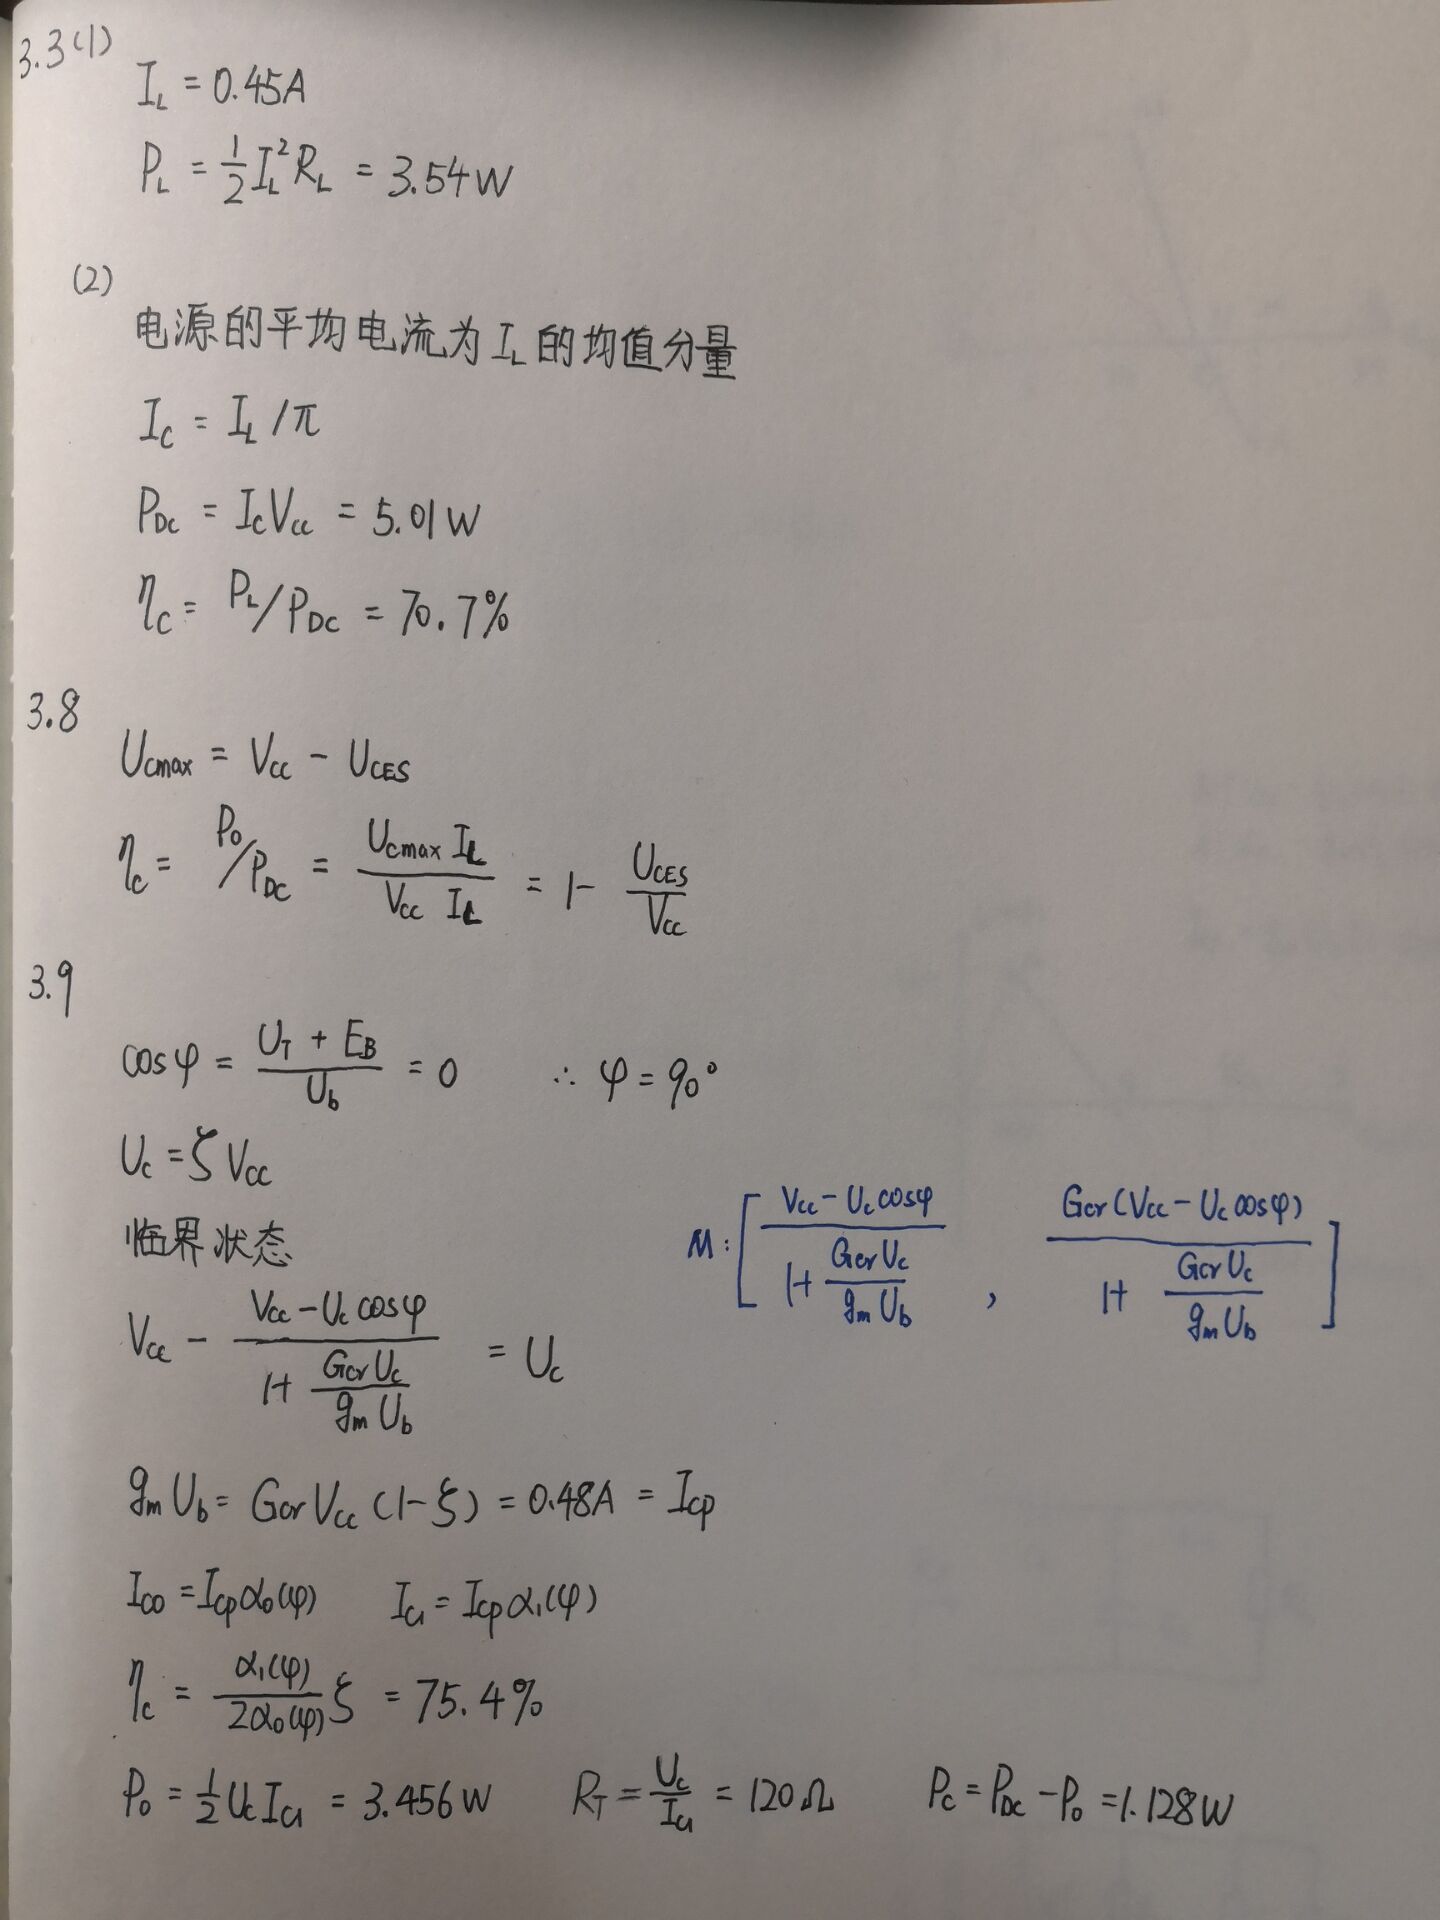 3.3(1)
I_L = 0.45A
P_L = 1/2 I_L² R_L = 3.54W
(2)
电源的平均电流为 I_L 的均值分量
I_C = I_L /π
P_DC = I_C V_CC = 5.01W
η_C = P_L/P_DC = 70.7%
3.8
U_cmax = V_CC - U_CES
η_C = P_0/P_DC = (U_cmax I_L)/(V_CC I_L) = 1 - U_CES/V_CC
3.9
cosφ = (U_T + E_B)/U_b = 0 ∴ φ = 90°
U_c = ξ V_CC
临界状态
M: [ (V_CC - U_c cosφ)/(1 + (G_cr U_c)/(g_m U_b)) , (G_cr (V_CC - U_c cosφ))/(1 + (G_cr U_c)/(g_m U_b)) ]
V_CC - (V_CC - U_c cosφ)/(1 + (G_cr U_c)/(g_m U_b)) = U_c
g_m U_b = G_cr V_CC (1-ξ) = 0.48A = I_cp
I_C0 = I_cp α₀(φ) I_C1 = I_cp α₁(φ)
η_C = α₁(φ)/2α₀(φ) ξ = 75.4%
P_0 = 1/2 U_c I_C1 = 3.456W R_T = U_c/I_C1 = 120Ω P_C = P_DC - P_0 = 1.128W